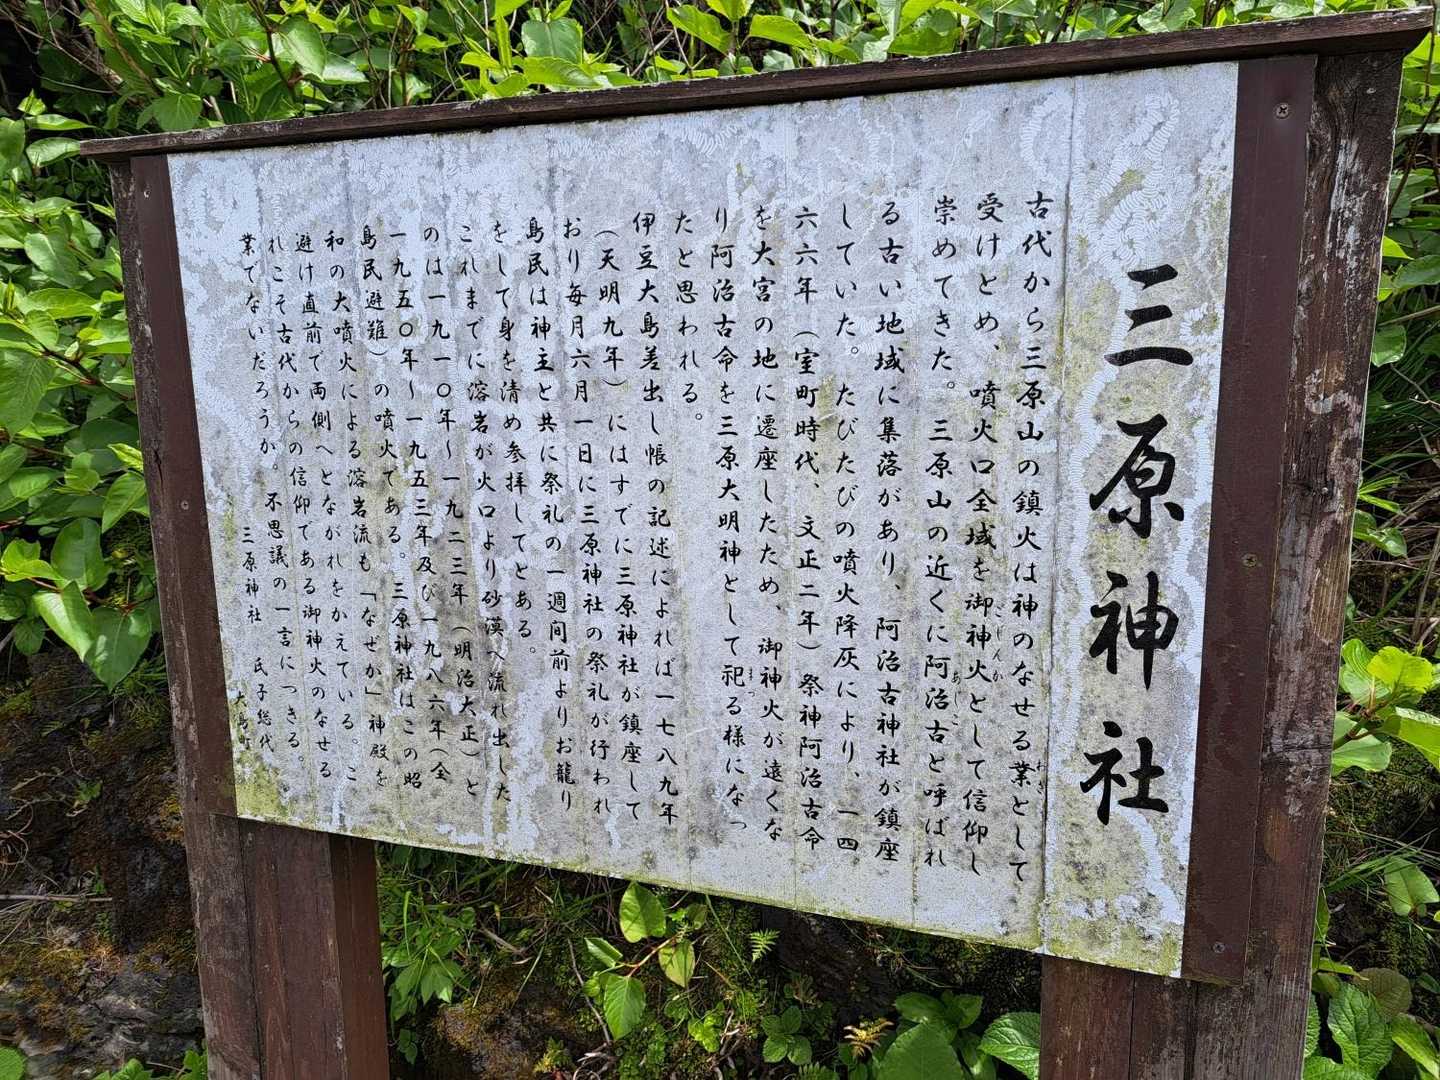 三原神社
古代から三原山の鎮火は神のなせる業として
わざ
受けとめ、噴火口全域を御神火として信仰し
ごじんか
崇めてきた。三原山の近くに阿治古と呼ばれ
あじこ
る古い地域に集落があり、阿治古神社が鎮座
していた。たびたびの噴火降灰により、一四
六六年（室町時代、文正二年）祭神阿治古命
を大宮の地に遷座したため、御神火が遠くな
り阿治古命を三原大明神として祀る様になっ
まつ
たと思われる。
伊豆大島差出し帳の記述によれば一七八九年
（天明九年）にはすでに三原神社が鎮座して
おり毎月六月一日に三原神社の祭礼が行われ
島民は神主と共に祭礼の一週間前よりお籠り
をして身を清め参拝してとある。
これまでに溶岩が火口より砂漠へ流れ出した
のは一九一〇年～一九二三年（明治大正）と
一九五〇年～一九五三年及び一九八六年（全
島民避難）の噴火である。三原神社はこの昭
和の大噴火による溶岩流も「なぜか」神殿を
避け直前で両側へとながれをかえている。こ
れこそ古代からの信仰である御神火のなせる
業でないだろうか。不思議の一言につきる。
三原神社　氏子総代
大島